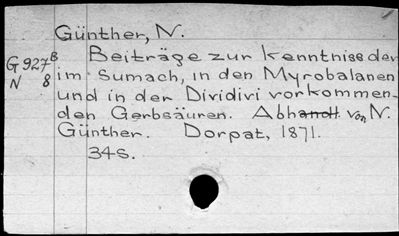 Günther, N.
G927B Beiträge zur Kenntniss der
N 8 im Sumach, in den Myrobalanen
und in der Dividivi vorkommen-
den Gerbsäuren. Abhandl. von N.
Günther. Dorpat, 1871.
34s.